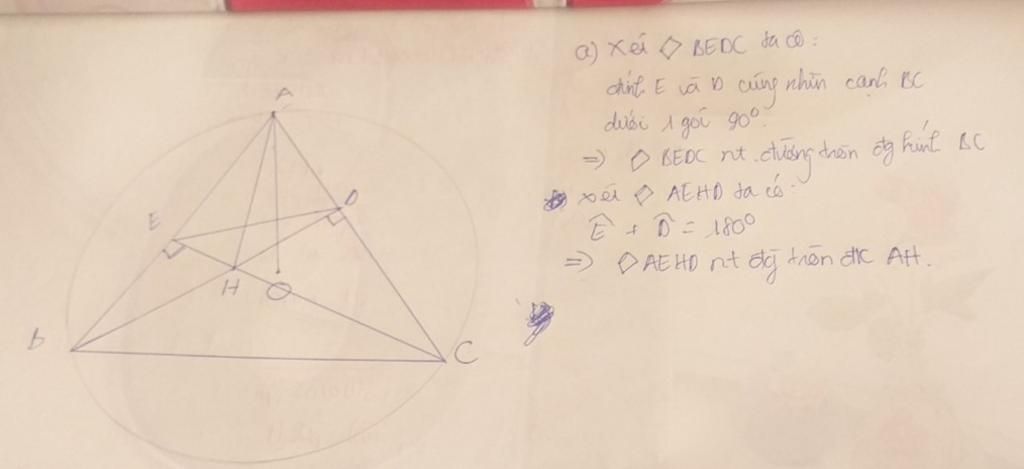 A
E
D
H
O
B
C
a) Xét ◇ BEDC ta có:
đỉnh E và D cùng nhìn cạnh BC
dưới 1 góc 90°.
=> ◇ BEDC nt đường tròn đg kính BC
Xét ◇ AEHD ta có:
Ê + D̂ = 180°
=> ◇ AEHD nt đg tròn đk AH.